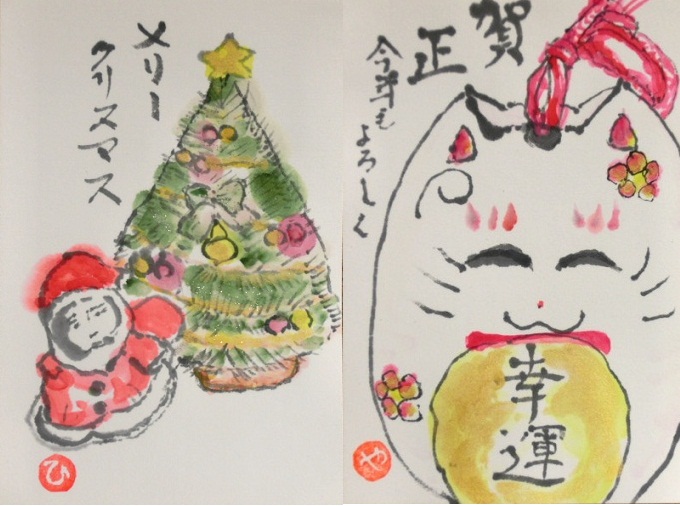 メリー
クリスマス
ひ
賀
正
今年も
よろしく
幸
運
や